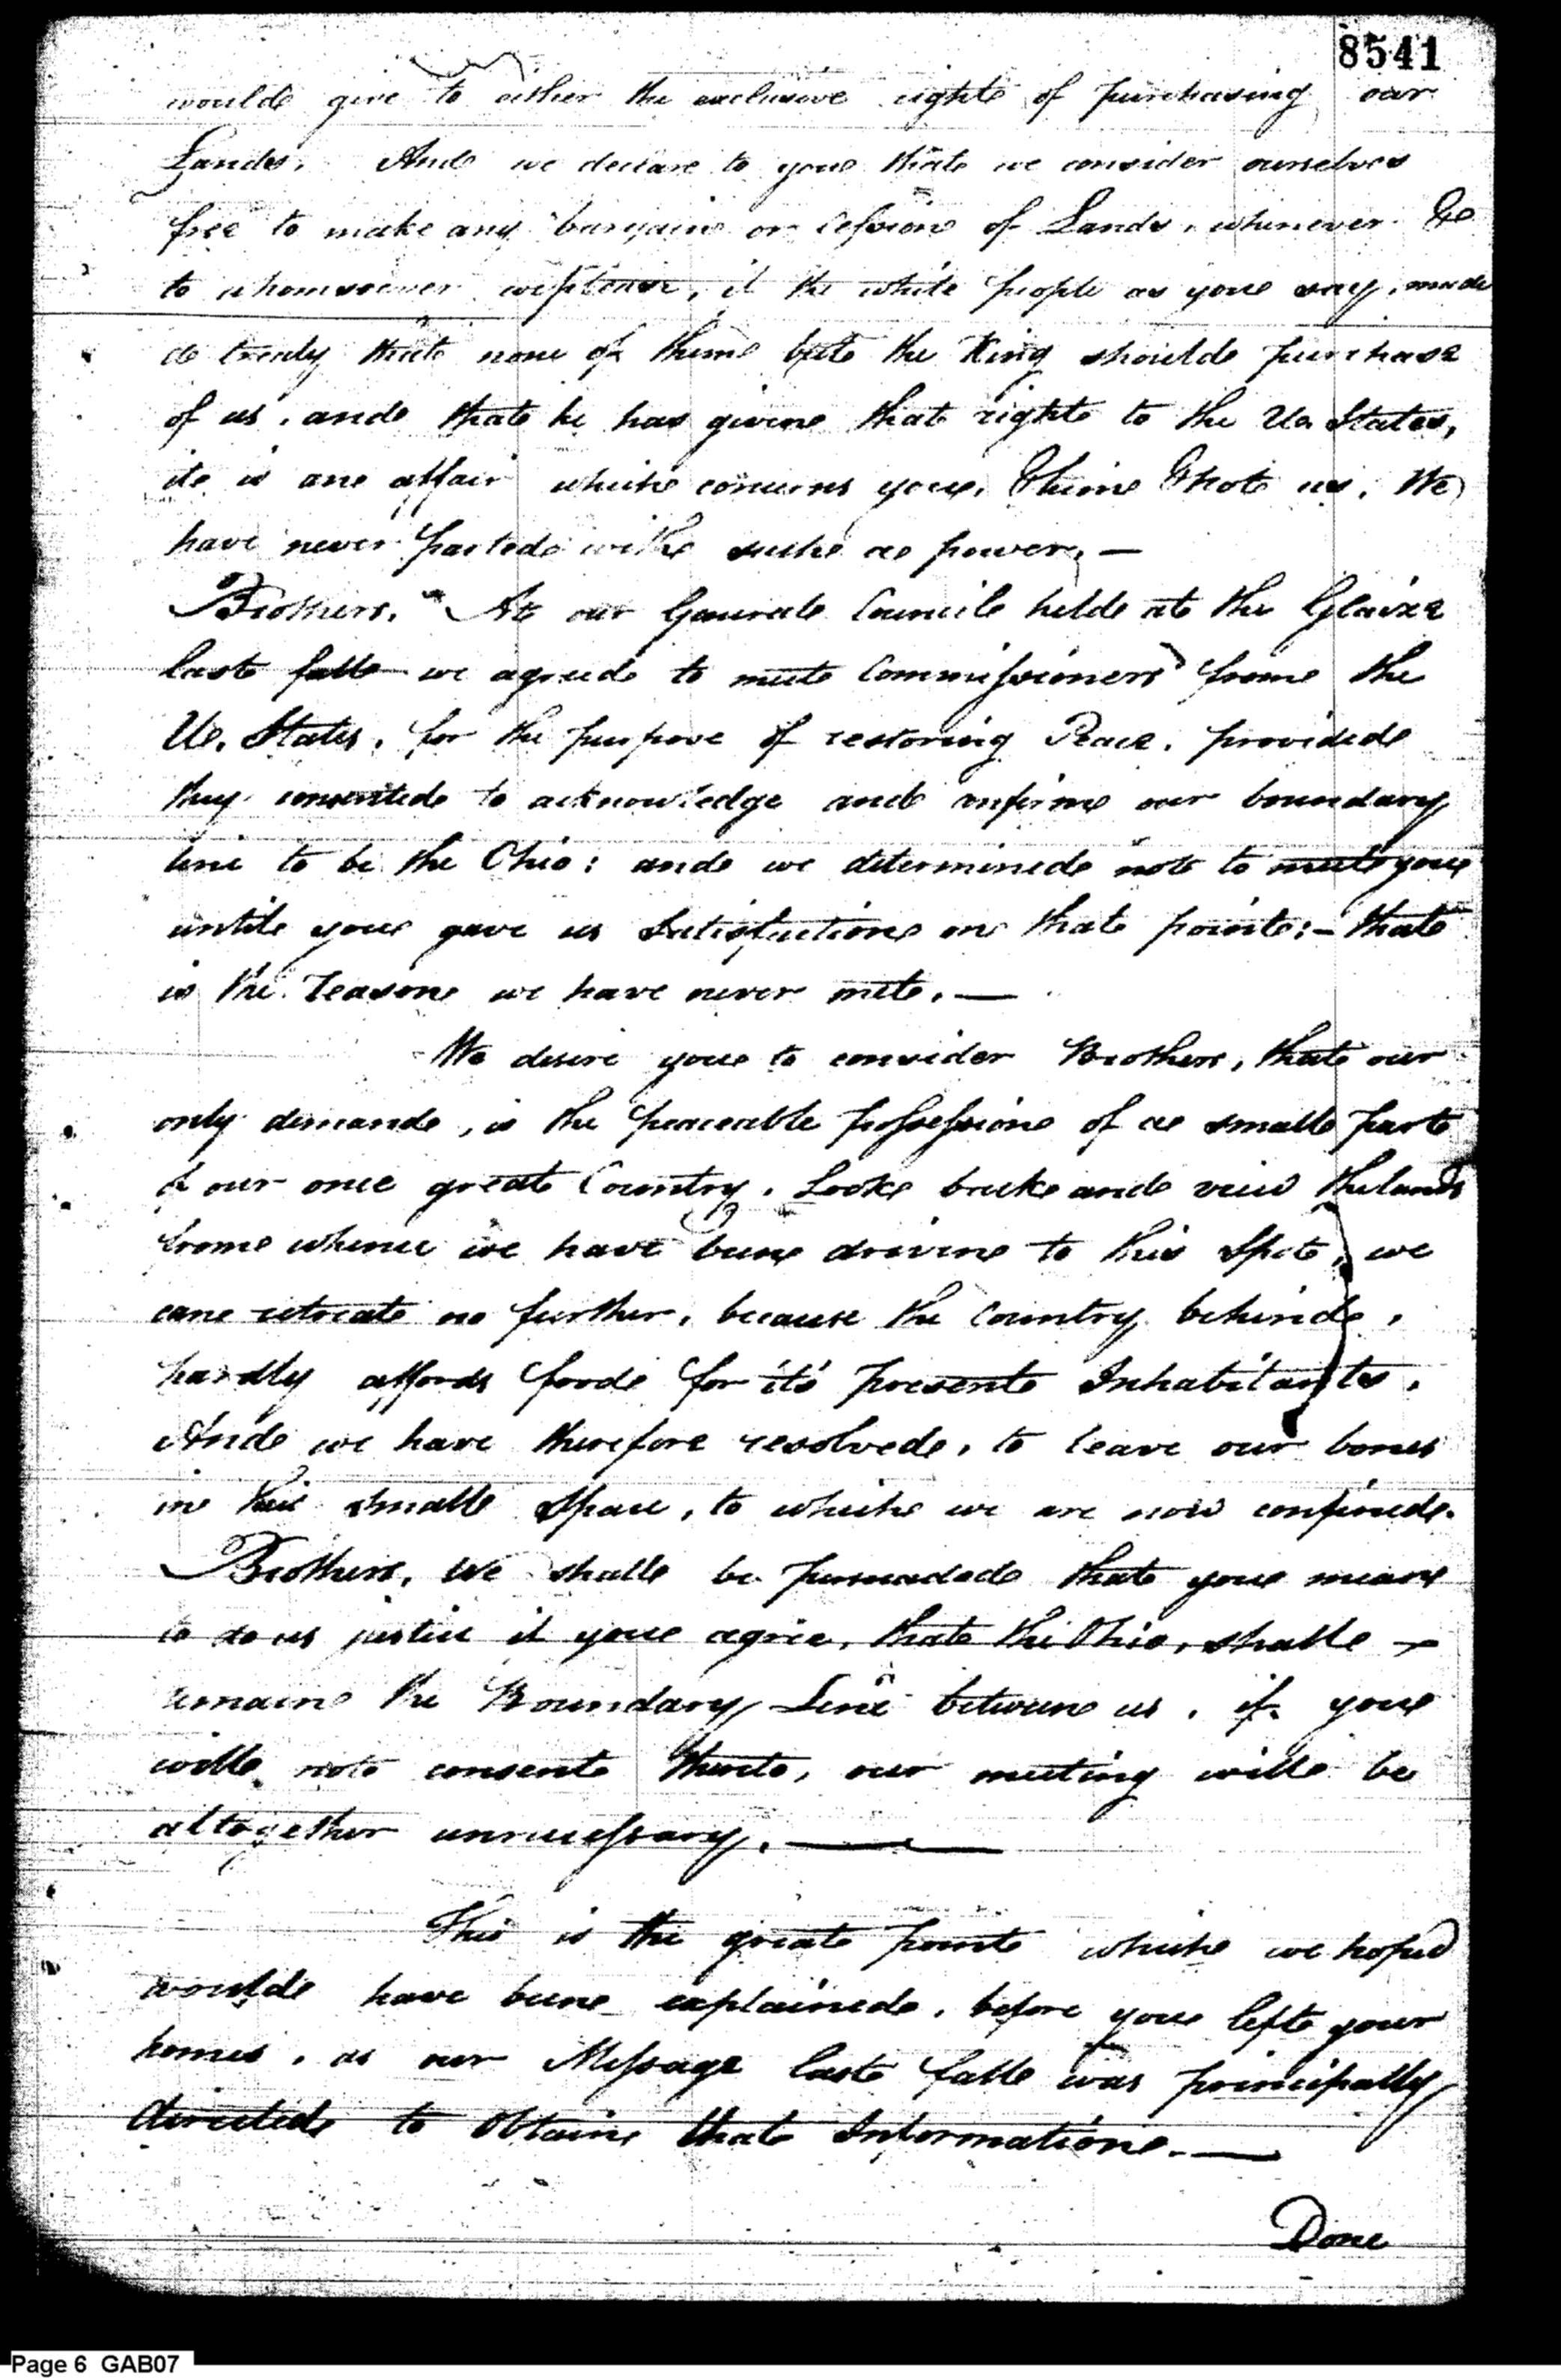 8541
would give to either the exclusive right of purchasing our
Lands. And we declare to you that we consider ourselves
free to make any bargain or Cession of Lands, whenever &
to whomsoever we please, if the white people as you say, made
a treaty that none of them but the King should purchase
of us, and that he has given that right to the U. States,
it is an affair which concerns you, & him & not us. We
have never parted with such a power. —
Brothers, At our General Council held at the Glaize
last fall we agreed to meet Commissioners from the
U. States, for the purpose of restoring Peace, provided
they consented to acknowledge and confirm our boundary
line to be the Ohio: and we determined not to meet you
until you gave us Satisfaction on that point: — that
is the reason we have never met. —
We desire you to consider Brothers, that our
only demand, is the peaceable possession of a small part
of our once great Country. Look back and view the lands
from whence we have been driven to this Spot, we
can retreat no further, because the Country behind,
hardly affords food for it's present Inhabitants.
And we have therefore resolved, to leave our bones
in this small Space, to which we are now confined.
Brothers, We shall be persuaded that you mean
to do us justice if you agree, that the Ohio, shall
remain the Boundary Line between us, if you
will not consent thereto, our meeting will be
altogether unnecessary. —
This is the great point which we hoped
would have been explained, before you left your
homes, as our Message last fall was principally
directed to Obtain that Information. —
Done
Page 6 GAB07